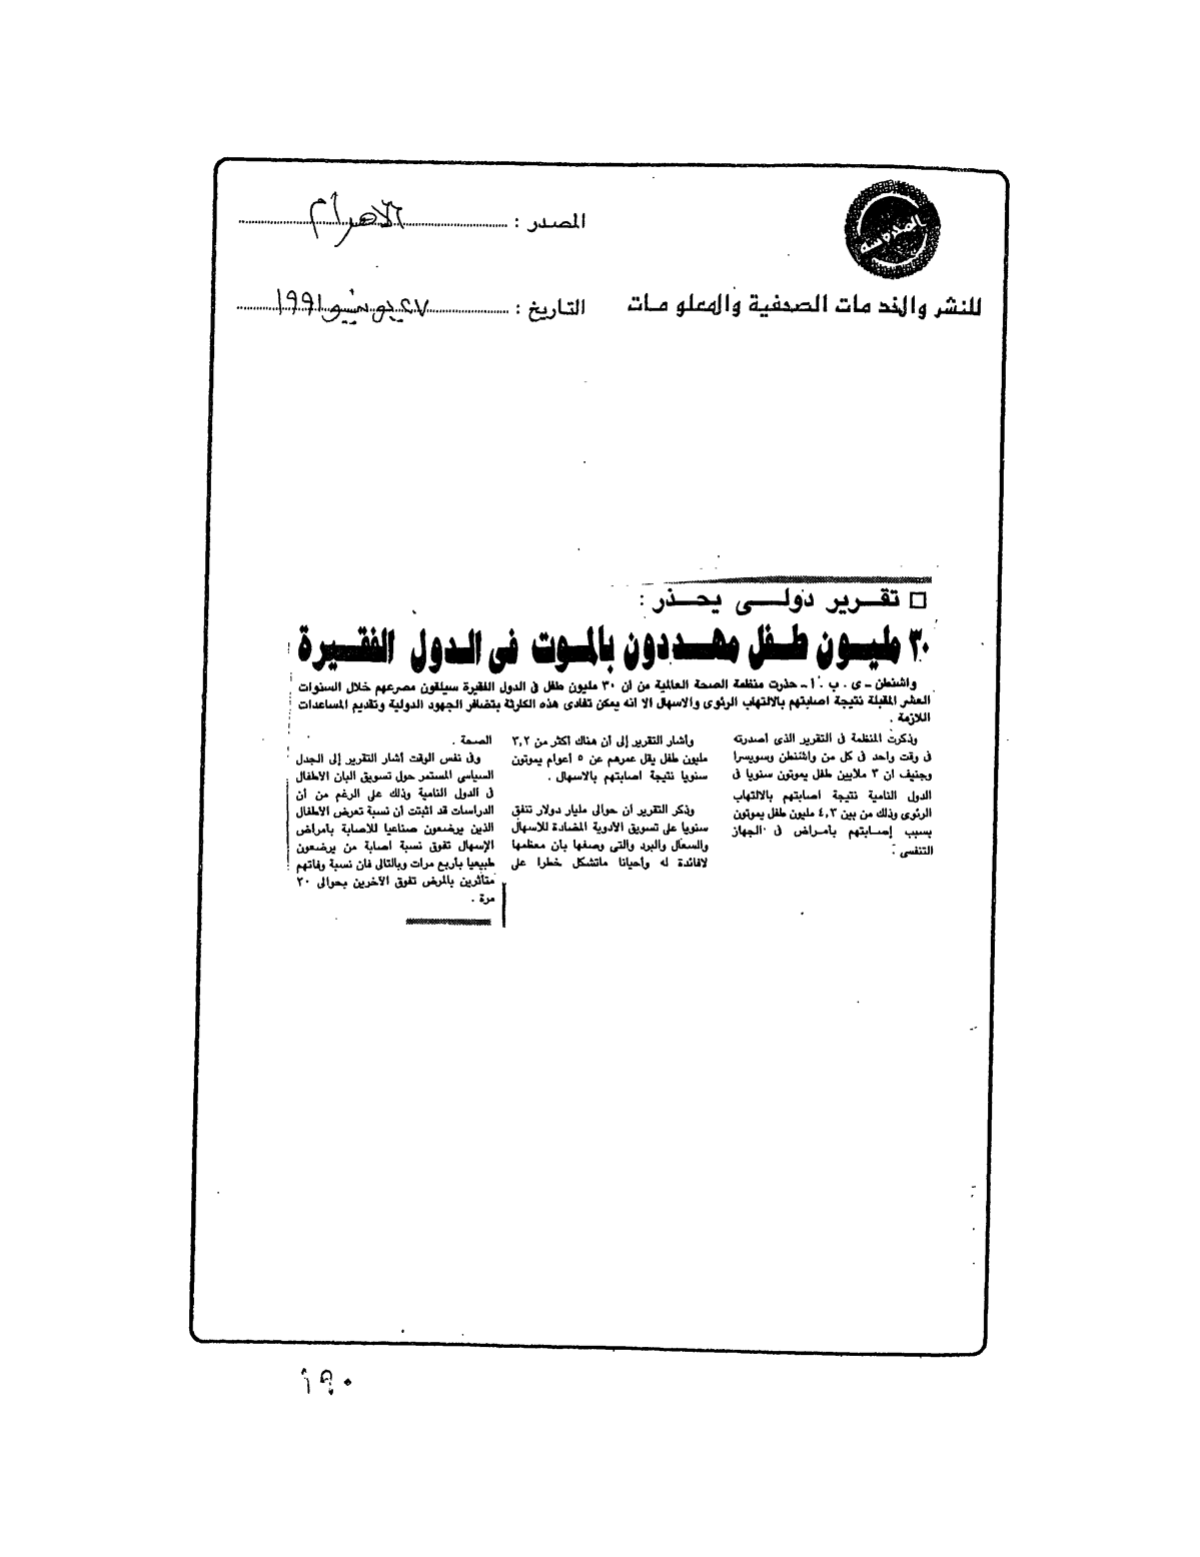 المصدر : الاهرام
للنشر والخدمات الصحفية والمعلومات
التاريخ : ٢٧ يونيو ١٩٩١
□ تقرير دولى يحذر :
٣٠ مليون طفل مهددون بالموت فى الدول الفقيرة
واشنطن ـ ى . ب . ا ـ حذرت منظمة الصحة العالمية من ان ٣٠ مليون طفل فى الدول الفقيرة سيلقون مصرعهم خلال السنوات
العشر المقبلة نتيجة اصابتهم بالالتهاب الرئوى والاسهال الا انه يمكن تفادى هذه الكارثة بتضافر الجهود الدولية وتقديم المساعدات
اللازمة .
وذكرت المنظمة فى التقرير الذى أصدرته
فى وقت واحد فى كل من واشنطن وسويسرا
وجنيف ان ٣ ملايين طفل يموتون سنويا فى
الدول النامية نتيجة اصابتهم بالالتهاب
الرئوى وذلك من بين ٤,٣ مليون طفل يموتون
بسبب إصابتهم بأمراض فى الجهاز
التنفسى .
وأشار التقرير إلى أن هناك أكثر من ٣,٢
مليون طفل يقل عمرهم عن ٥ أعوام يموتون
سنويا نتيجة اصابتهم بالاسهال .
وذكر التقرير ان حوالى مليار دولار تنفق
سنويا على تسويق الأدوية المضادة للاسهال
والسعال والبرد والتى وصفها بان معظمها
لافائدة له وأحيانا ماتشكل خطرا على
الصحة .
وفى نفس الوقت أشار التقرير إلى الجدل
السياسى المستمر حول تسويق البان الاطفال
فى الدول النامية وذلك على الرغم من أن
الدراسات قد اثبتت أن نسبة تعرض الأطفال
الذين يرضعون صناعيا للاصابة بأمراض
الإسهال تفوق نسبة اصابة من يرضعون
طبيعيا بأربع مرات وبالتالى فان نسبة وفاتهم
متأثرين بالمرض تفوق الآخرين بحوالى ٢٠
مرة .
١٩٠